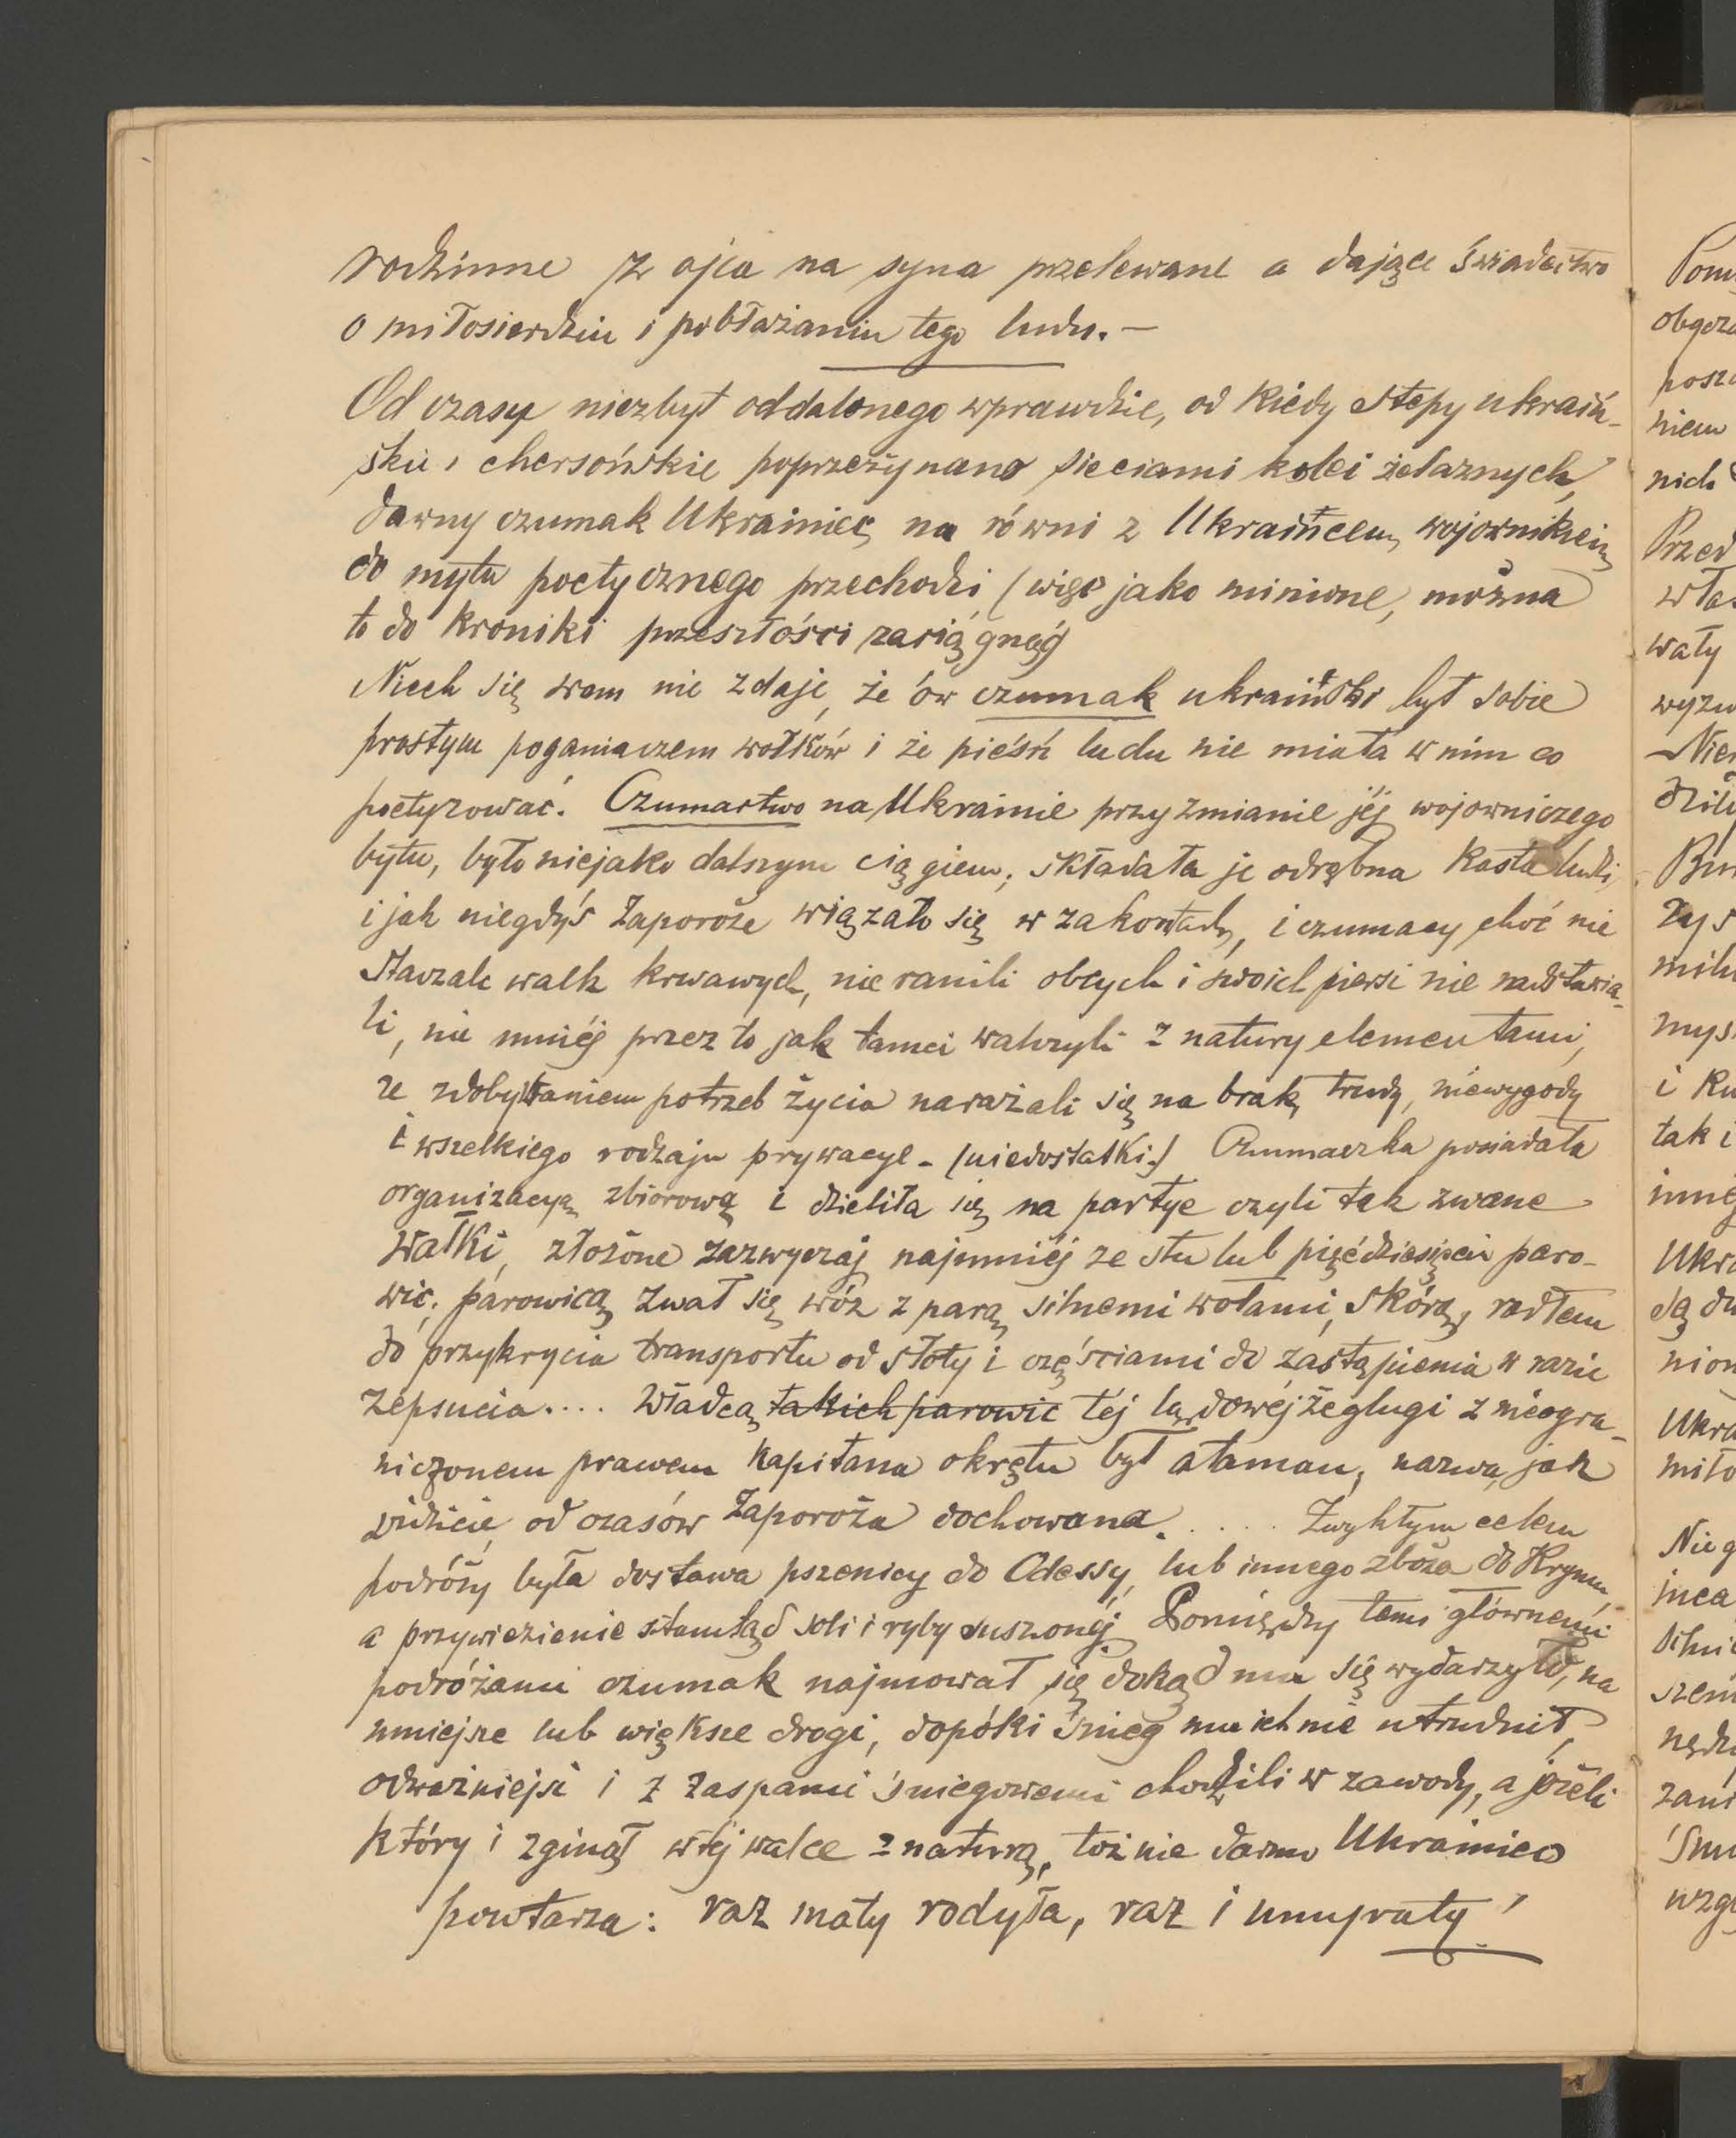 rodzinne z ojca na syna przelewane a dające świadectwo
o miłosierdziu i pobłażaniu tego ludu. —
Od czasu niezbyt oddalonego wprawdzie, od kiedy stepy ukraiń-
skie i chersońskie poprzerzynano sieciami kolei żelaznych,
dawny czumak Ukrainiec na równi z Ukraińcem wojownikiem
do mytu poetycznego przechodzi, (więc jako minione, można
to do kroniki przeszłości zaciągnąć
Niech się wam nie zdaje, że ów czumak ukraiński był sobie
prostym poganiaczem wołków i że pieśń ludu nie miała w nim co
poetyzować. Czumactwo na Ukrainie przy zmianie jéj wojowniczego
bytu, było niejako dalszym ciągiem; składała je odrębna kasta ludzi,
i jak niegdyś Zaporoże wiązało się w zakon, i czumacy choć nie
staczali walk krwawych, nie ranili obcych i swoich piersi nie nadstawia-
li, nie mniéj przez to jak tamci walczyli z natury elementami,
ze zdobywaniem potrzeb życia narażali się na brak, trudy, niewygody
i wszelkiego rodzaju prywacye - (niedostatki.) Czumaczka posiadała
organizacyą zbiorową i dzieliła się na partye czyli tak zwane
wałki, złożone zazwyczaj najmniéj ze stu lub pięćdziesięciu paro-
wic; parowicą zwał się wóz z parą silnemi wołami, skórą, radłem
do przykrycia transportu od słoty i częściami do zastąpienia w razie
zepsucia.... Władcą takich parowic téj lądowéj żeglugi z nieogra-
niczonem prawem kapitana okrętu był ataman, nazwa, jak
widzicie, od czasów Zaporoża dochowana. .... Zwykłym celem
podróży była dostawa pszenicy do Odessy, lub innego zboża do Krymu,
a przywiezienie stamtąd soli i ryby suszonéj. Pomiędzy temi głównemi
podróżami czumak najmował się dokąd mu się wydarzyło, na
mniejsze lub większe drogi, dopóki śnieg mu ich nie utrudnił,
odważniejsi i z zaspami śniegowemi chodzili w zawody, a jeżeli
który i zginął w téj walce z naturą, toż nie darmo Ukrainiec
powtarza: raz maty rodyła, raz i umyraty!